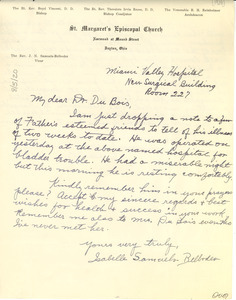 The Rt. Rev. Boyd Vincent, D. D.
Bishop
The Rt. Rev. Theodore Irving Reese, D. D.
Bishop Coadjutor
The Venerable B. H. Reinheimer
Archdeacon
St. Margaret's Episcopal Church
Dayton, Ohio
The Rev. J. N. Samuels-Belboder
Vicar
Miami Valley Hospital
New Surgical Building
Room 227
My dear Dr. Du Bois,
I am just dropping a note to a few
of Father's esteemed friends to tell of his illness
of two weeks to date. He was operated on
yesterday at the above named hospital for
bladder trouble. He had a miserable night
but this morning he is resting comfortably.
Kindly remember him in your prayers
please! Accept my sincere regards & best
wishes for health & success in your work.
Remember me also to Mrs. Du Bois even tho
I've never met her.
Yours very truly,
Isabelle Samuels-Belboder